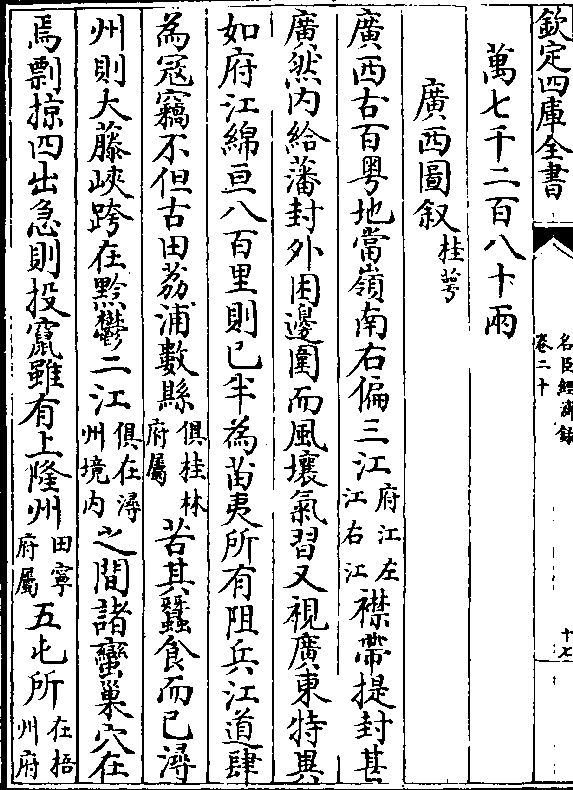 欽定四庫全書
名臣經濟録
卷二十
十七
萬七千二百八十兩
廣西圖叙桂萼
廣西古百粤地當嶺南右偏三江府江左江右江襟帶提封甚
廣然内給藩封外困邊圉而風壤氣習又視廣東特異
如府江綿亘八百里則已半為苗夷所有阻兵江道肆
為冦竊不但古田荔浦數縣俱桂林府屬若其蠶食而已潯
州則大藤峽跨在黔鬱二江俱在潯州境内之間諸蠻巢穴在
焉剽掠四出急則投竄雖有上隆州田寧府屬五屯所在梧州府